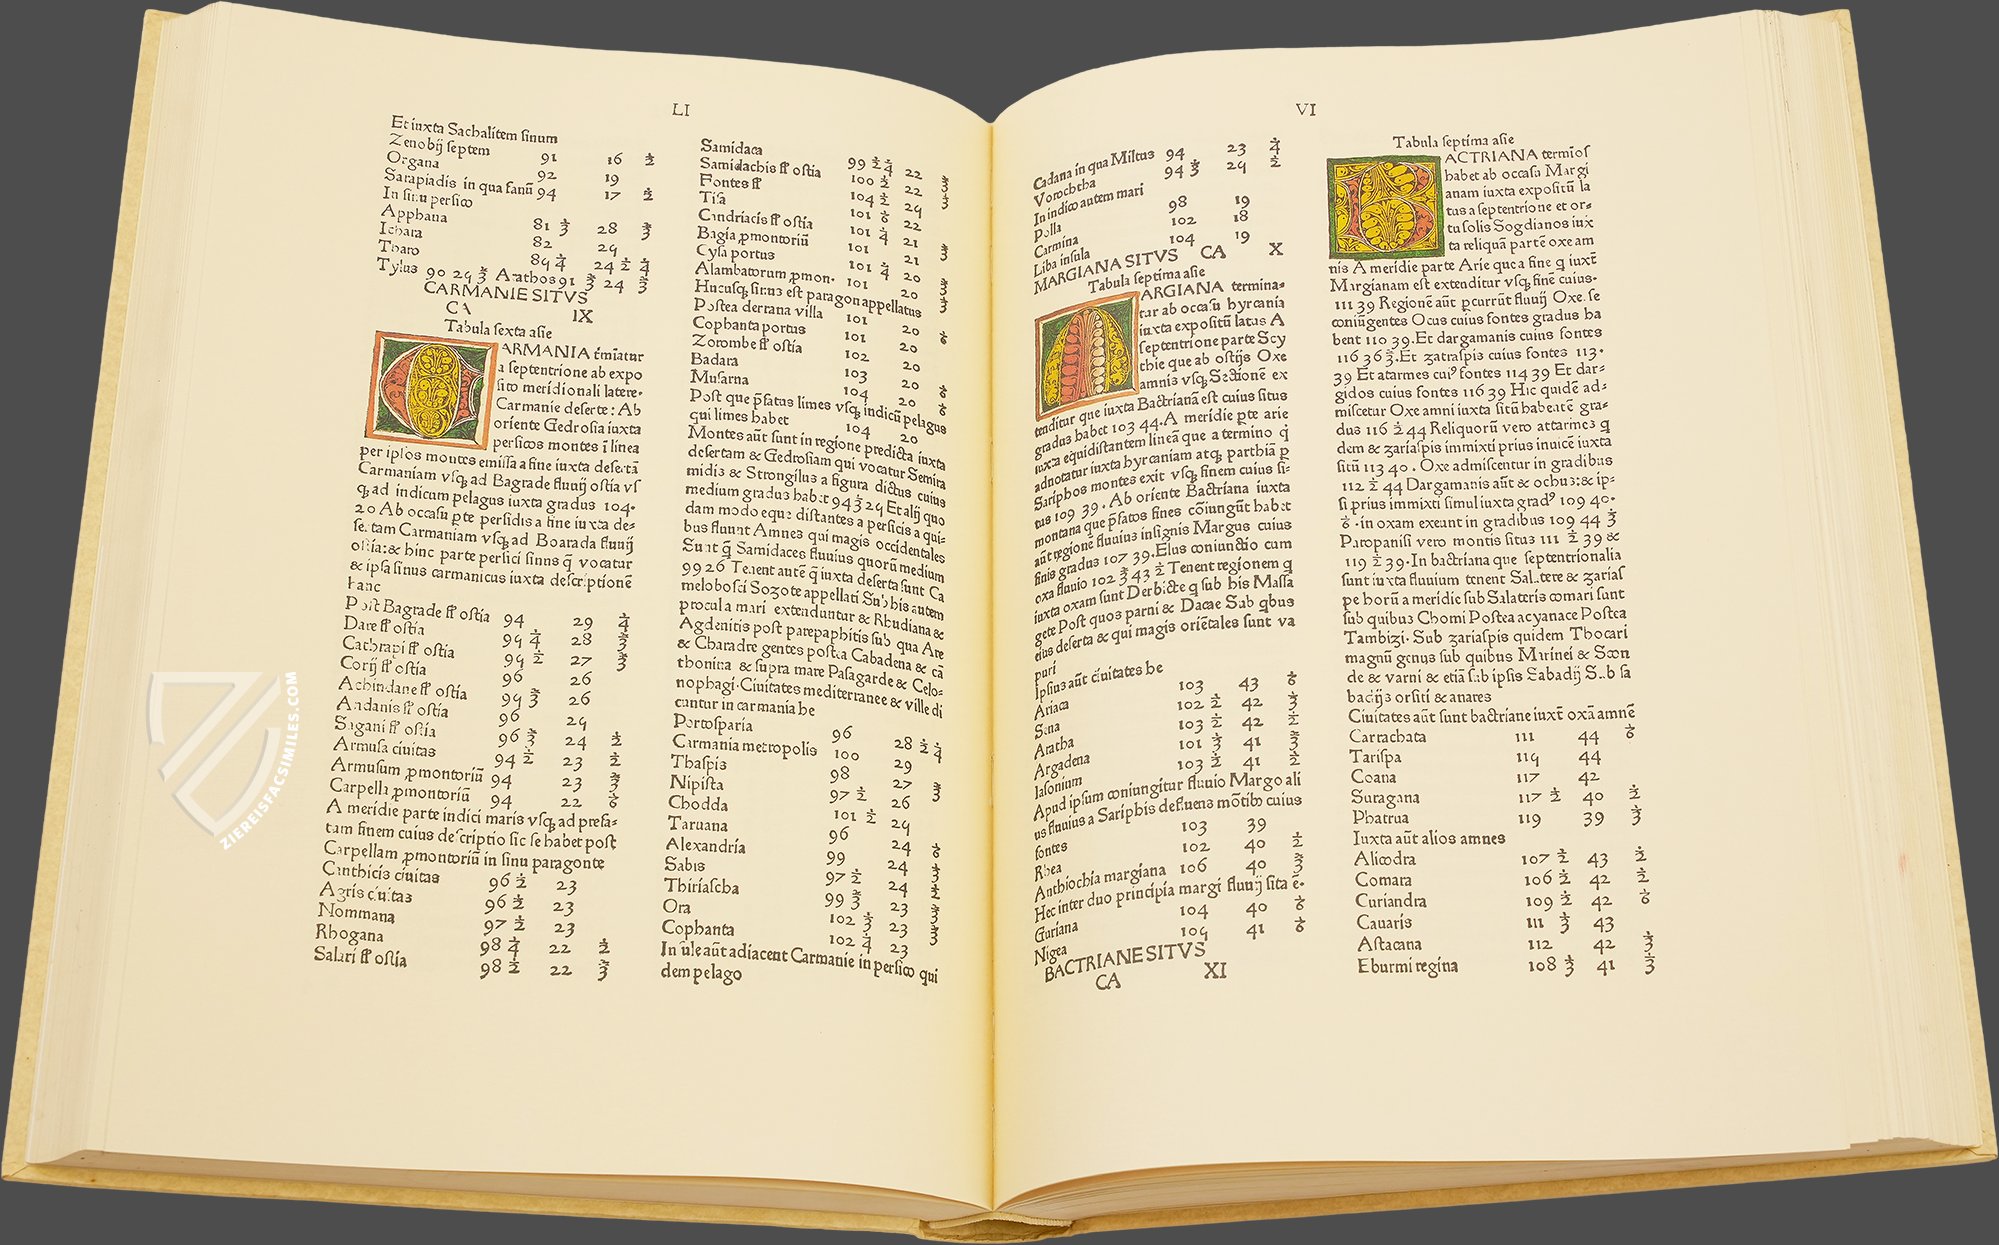 LI
Et iuxta Sachalitem sinum
Zenobij septem 91 16 ½
Organa 92 19
Sarapiadis in qua fanū 94 17 ½
In sinu persico
Apphana 81 ⅓ 28 ⅔
Ichara 82 29
Tharo 89 ¼ 24 ½ ¼
Tylus 90 29 ⅔ Arathos 91 ⅔ 24 ⅔
CARMANIE SITVS
CA IX
Tabula sexta asie
CARMANIA tm̄iatur
a septentrione ab expo
sito meridionali latere.
Carmanie deserte: Ab
oriente Gedrosia iuxta
persicos montes ī linea
per ipsos montes emissa a fine iuxta desertā
Carmaniam vsq ad Bagrade fluuij ostia vs
q ad indicum pelagus iuxta gradus 104.
20 Ab occasu pte persidis a fine iuxta de-
sertam Carmaniam vsq ad Boarada fluuij
ostia: & hinc parte persici sinus q̄ vocatur
& ipsa sinus carmanicus iuxta descriptionē
hanc
Post Bagrade fl' ostia 94 29 ¼
Dare fl' ostia 94 ¼ 28 ⅔
Cathrapi fl' ostia 94 ½ 27 ⅔
Corij fl' ostia 96 26
Achindane fl' ostia 94 ⅔ 26
Andanis fl' ostia 96 24
Sagani fl' ostia 96 ⅔ 24 ½
Armusa ciuitas 94 ½ 23 ½
Armusum pmontoriū 94 23 ⅔
Carpella pmontoriū 94 22 ⅙
A meridie parte indici maris vsq ad prefa-
tam finem cuius descriptio sic se habet post
Carpellam pmontoriū in sinu paragonte
Canthicis ciuitas 96 ½ 23
Agris ciuitas 96 ½ 23
Nommana 97 ½ 23
Rhogana 98 ¼ 22 ½
Salari fl' ostia 98 ½ 22 ⅔
Samidaca 99 ½ ¼ 22 ⅔
Samidachis fl' ostia 100 ½ 22 ⅓
Fontes fl' 104 ½ 24
Tisa 101 ⅙ 22
Candriacis fl' ostia 101 ¼ 21 ⅔
Bagia pmontoriū 101 21
Cysa portus 101 ¼ 20 ⅔
Alambatorum pmon. 101 20 ⅓
Hucusq sinus est paragon appellatus
Postea derrana villa 101 20
Cophanta portus 101 20 ⅙
Zorombe fl' ostia 102 20
Badara 103 20 ⅙
Musarna 104 20 ⅙
Post que pfatus limes vsq indicū pelagus
qui limes habet 104 20
Montes aūt sunt in regione predicta iuxta
desertam & Gedrosiam qui vocatur Semira
midis & Strongilus a figura dictus cuius
medium gradus habet 94 ⅓ 24 Et alij quo
dam modo eque distantes a persicis a qui-
bus fluunt Amnes qui magis occidentales
Sunt q̄ Samidaces fluuius quorū medium
99 26 Tenent autē q̄ iuxta deserta sunt Ca
melobosci Sozote appellati Sub his autem
procul a mari extenduntur & Rhudiana &
Agdenitis post parepaphitis sub qua Are
& Charadre gentes postea Cabadena & cā
thonina & supra mare Pasagarde & Celo-
nophagi. Ciuitates mediterranee & ville di
cuntur in carmania he
Portosparia 96 28 ½ ¼
Carmania metropolis 100 29
Thaspis 98 27 ⅔
Nipista 97 ½ 26
Chodda 101 ½ 24
Taruana 96 24 ⅙
Alexandria 99 24 ⅓
Sabis 97 ½ 24 ½
Thiriascha 99 ⅔ 23 ⅔
Ora 102 ⅓ 23 ⅔
Cophanta 102 ¼ 23
In ūle aūt adiacent Carmanie in persico qui
dem pelago
VI
Cadana in qua Miltus 94 23 ¼
Vorochtha 94 ⅓ 24 ½
In indico autem mari
Polla 98 19
Carmina 102 18
Liba insula 104 19
MARGIANA SITVS CA X
Tabula septima asie
MARGIANA termina-
tur ab occasu hyrcania
iuxta expositū latus A
septentrione parte Scy
thie que ab ostijs Oxe
amnis vsq Sectionē ex
tenditur que iuxta Bactrianā est cuius situs
gradus habet 103 44. A meridie pte arie
iuxta equidistantem lineā que a termino q̇
adnotatur iuxta hyrcaniam atq parthiā p
Sariphos montes exit vsq finem cuius si-
tus 109 39. Ab oriente Bactriana iuxta
montana que pfatos fines cōiungūt habet
aūt regionē fluuius insignis Margus cuius
finis gradus 107 39. Eius coniunctio cum
oxa fluuio 102 ⅔ 43 ½ Tenent regionem q
iuxta oxam sunt Derbicte q sub his Massa
gete Post quos parni & Dacae Sub qbus
eius deserta & qui magis oriētales sunt va
puri
Ipsius aūt ciuitates he
Ariaca 103 43 ⅙
Sena 102 ½ 42 ⅓
Aratha 103 ½ 42 ½
Argadena 101 ⅓ 41 ⅔
Iasonium 103 ½ 41 ½
Apud ipsum coniungitur fluuio Margo ali
us fluuius a Sariphis defluens mōtibꝯ cuius
fontes 103 39
Rhea 102 40 ½
Anthiochia margiana 106 40 ⅔
Hec inter duo principia margi fluuij sita ē.
Guriana 104 40 ⅙
Nigea 104 41 ⅙
BACTRIANE SITVS
CA XI
Tabula septima asie
BACTRIANA termīos
habet ab occasu Margi
anam iuxta expositū la
tus a septentrione et or-
tu solis Sogdianos iux
ta reliquā partē oxe am
nis A meridie parte Arie que a fine q iuxt̄
Margianam est extenditur vsq finē cuius.
111 39 Regionē aūt pcurrūt fluuij Oxe. se
coniūgentes Ocus cuius fontes gradus ha
bent 110 39. Et dargamanis cuius fontes
116 36 ⅔. Et zatraspis cuius fontes 113.
39 Et atarmes cui' fontes 114 39 Et dar-
gidos cuius fontes 116 39 Hic quidē ad-
miscetur Oxe amni iuxta sitū habētē gra-
dus 116 ½ 44 Reliquorū vero attarmes q
dem & zariaspis immixti prius inuicē iuxta
sitū 113 40. Oxe admiscentur in gradibus
112 ½ 44 Dargamanis aūt & ochus: & ip-
si prius immixti simul iuxta grad' 109 40.
⅙. in oxam exeunt in gradibus 109 44 ⅓
Paropanisi vero montis situs 111 ½ 39 &
119 ½ 39. In bactriana que septentrionalia
sunt iuxta fluuium tenent Salatere & zarias
pe horū a meridie sub Salateris comari sunt
sub quibus Chomi Postea acyanace Postea
Tambizi. Sub zariaspis quidem Thocari
magnū genus sub quibus Marinei & Scor
de & varni & etiā sub ipsis Sabadij Sub sa
badijs orsiti & anares
Ciuitates aūt sunt bactriane iuxt̄ oxā amnē
Carrachata 111 44 ⅙
Tarispa 114 44
Coana 117 42
Suragana 117 ½ 40 ½
Phatrua 119 39 ⅓
Iuxta aūt alios amnes
Alicodra 107 ½ 43 ½
Comara 106 ½ 42 ½
Curiandra 109 ½ 42 ⅙
Cauaris 111 ⅓ 43
Astacana 112 42 ⅓
Eburmi regina 108 ⅓ 41 ⅓
ZIEREISFACSIMILES.COM